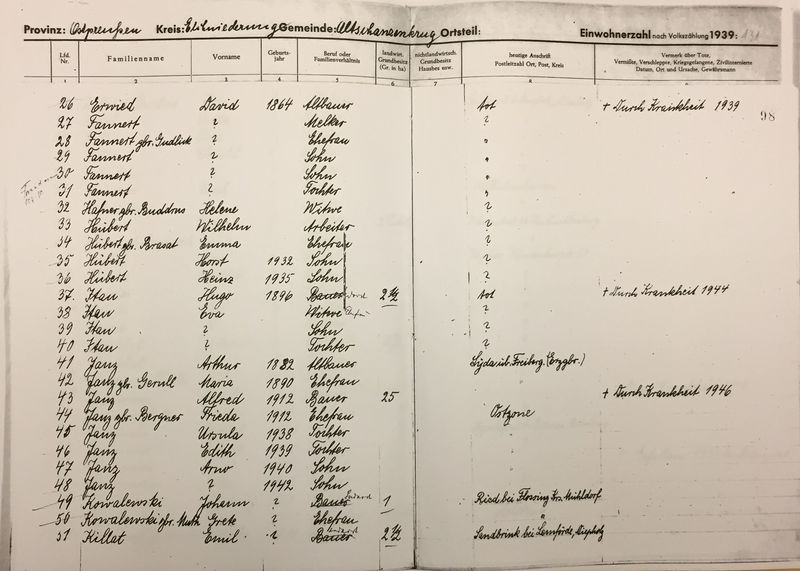 Provinz: Ostpreußen Kreis: Elchniederung Gemeinde: Altschanzenkrug Ortsteil: Einwohnerzahl nach Volkszählung 1939: 131
Lfd. Nr. Familienname Vorname Geburtsjahr Beruf oder Familienverhältnis landwirt. Grundbesitz (Gr. in ha) nichtlandwirtsch. Grundbesitz Hausbes usw. heutige Anschrift Postleitzahl Ort, Post, Kreis Vermerk über Tote, Vermißte, Verschleppte, Kriegsgefangene, Zivilinternierte Datum, Ort und Ursache, Gewährsmann
1 2 3 4 5 6 7 8
98
26 Erwied David 1864 Altbauer tot † Durch Krankheit 1939
27 Fannert ? Melker ?
28 Fannert gbr. Gudlick ? Ehefrau "
29 Fannert ? Sohn "
30 Fannert ? Sohn "
31 Fannert ? Tochter "
32 Hafner gbr. Buddrus Helene Witwe ?
33 Hübert Wilhelm Arbeiter ?
34 Hübert gbr. Brasat Emma Ehefrau ?
35 Hübert Horst 1932 Sohn ?
36 Hübert Heinz 1935 Sohn ?
37. Itau Hugo 1896 Bauer 2 1/2 tot † Durch Krankheit 1944
38 Itau Eva Witwe ?
39 Itau ? Sohn ?
40 Itau ? Tochter ?
41 Janz Arthur 1882 Altbauer Sayda üb. Freiberg. (Erzgbr.)
42 Janz gbr. Gerull Maria 1890 Ehefrau "
43 Janz Alfred 1912 Bauer 25 † Durch Krankheit 1946
44 Janz gbr. Bergner Frieda 1912 Ehefrau Ostzone
45 Janz Ursula 1938 Tochter "
46 Janz Edith 1939 Tochter "
47 Janz Arno 1940 Sohn "
48 Janz ? 1942 Sohn "
49 Kowalewski Johann ? Bauer 1 Ried bei Flossing Krs. Mühldorf
50 Kowalewski gbr. Grete ? Ehefrau "
51 Killat Emil ? Bauer 2 1/2 Sandbrink bei Lemförde, Diepholz